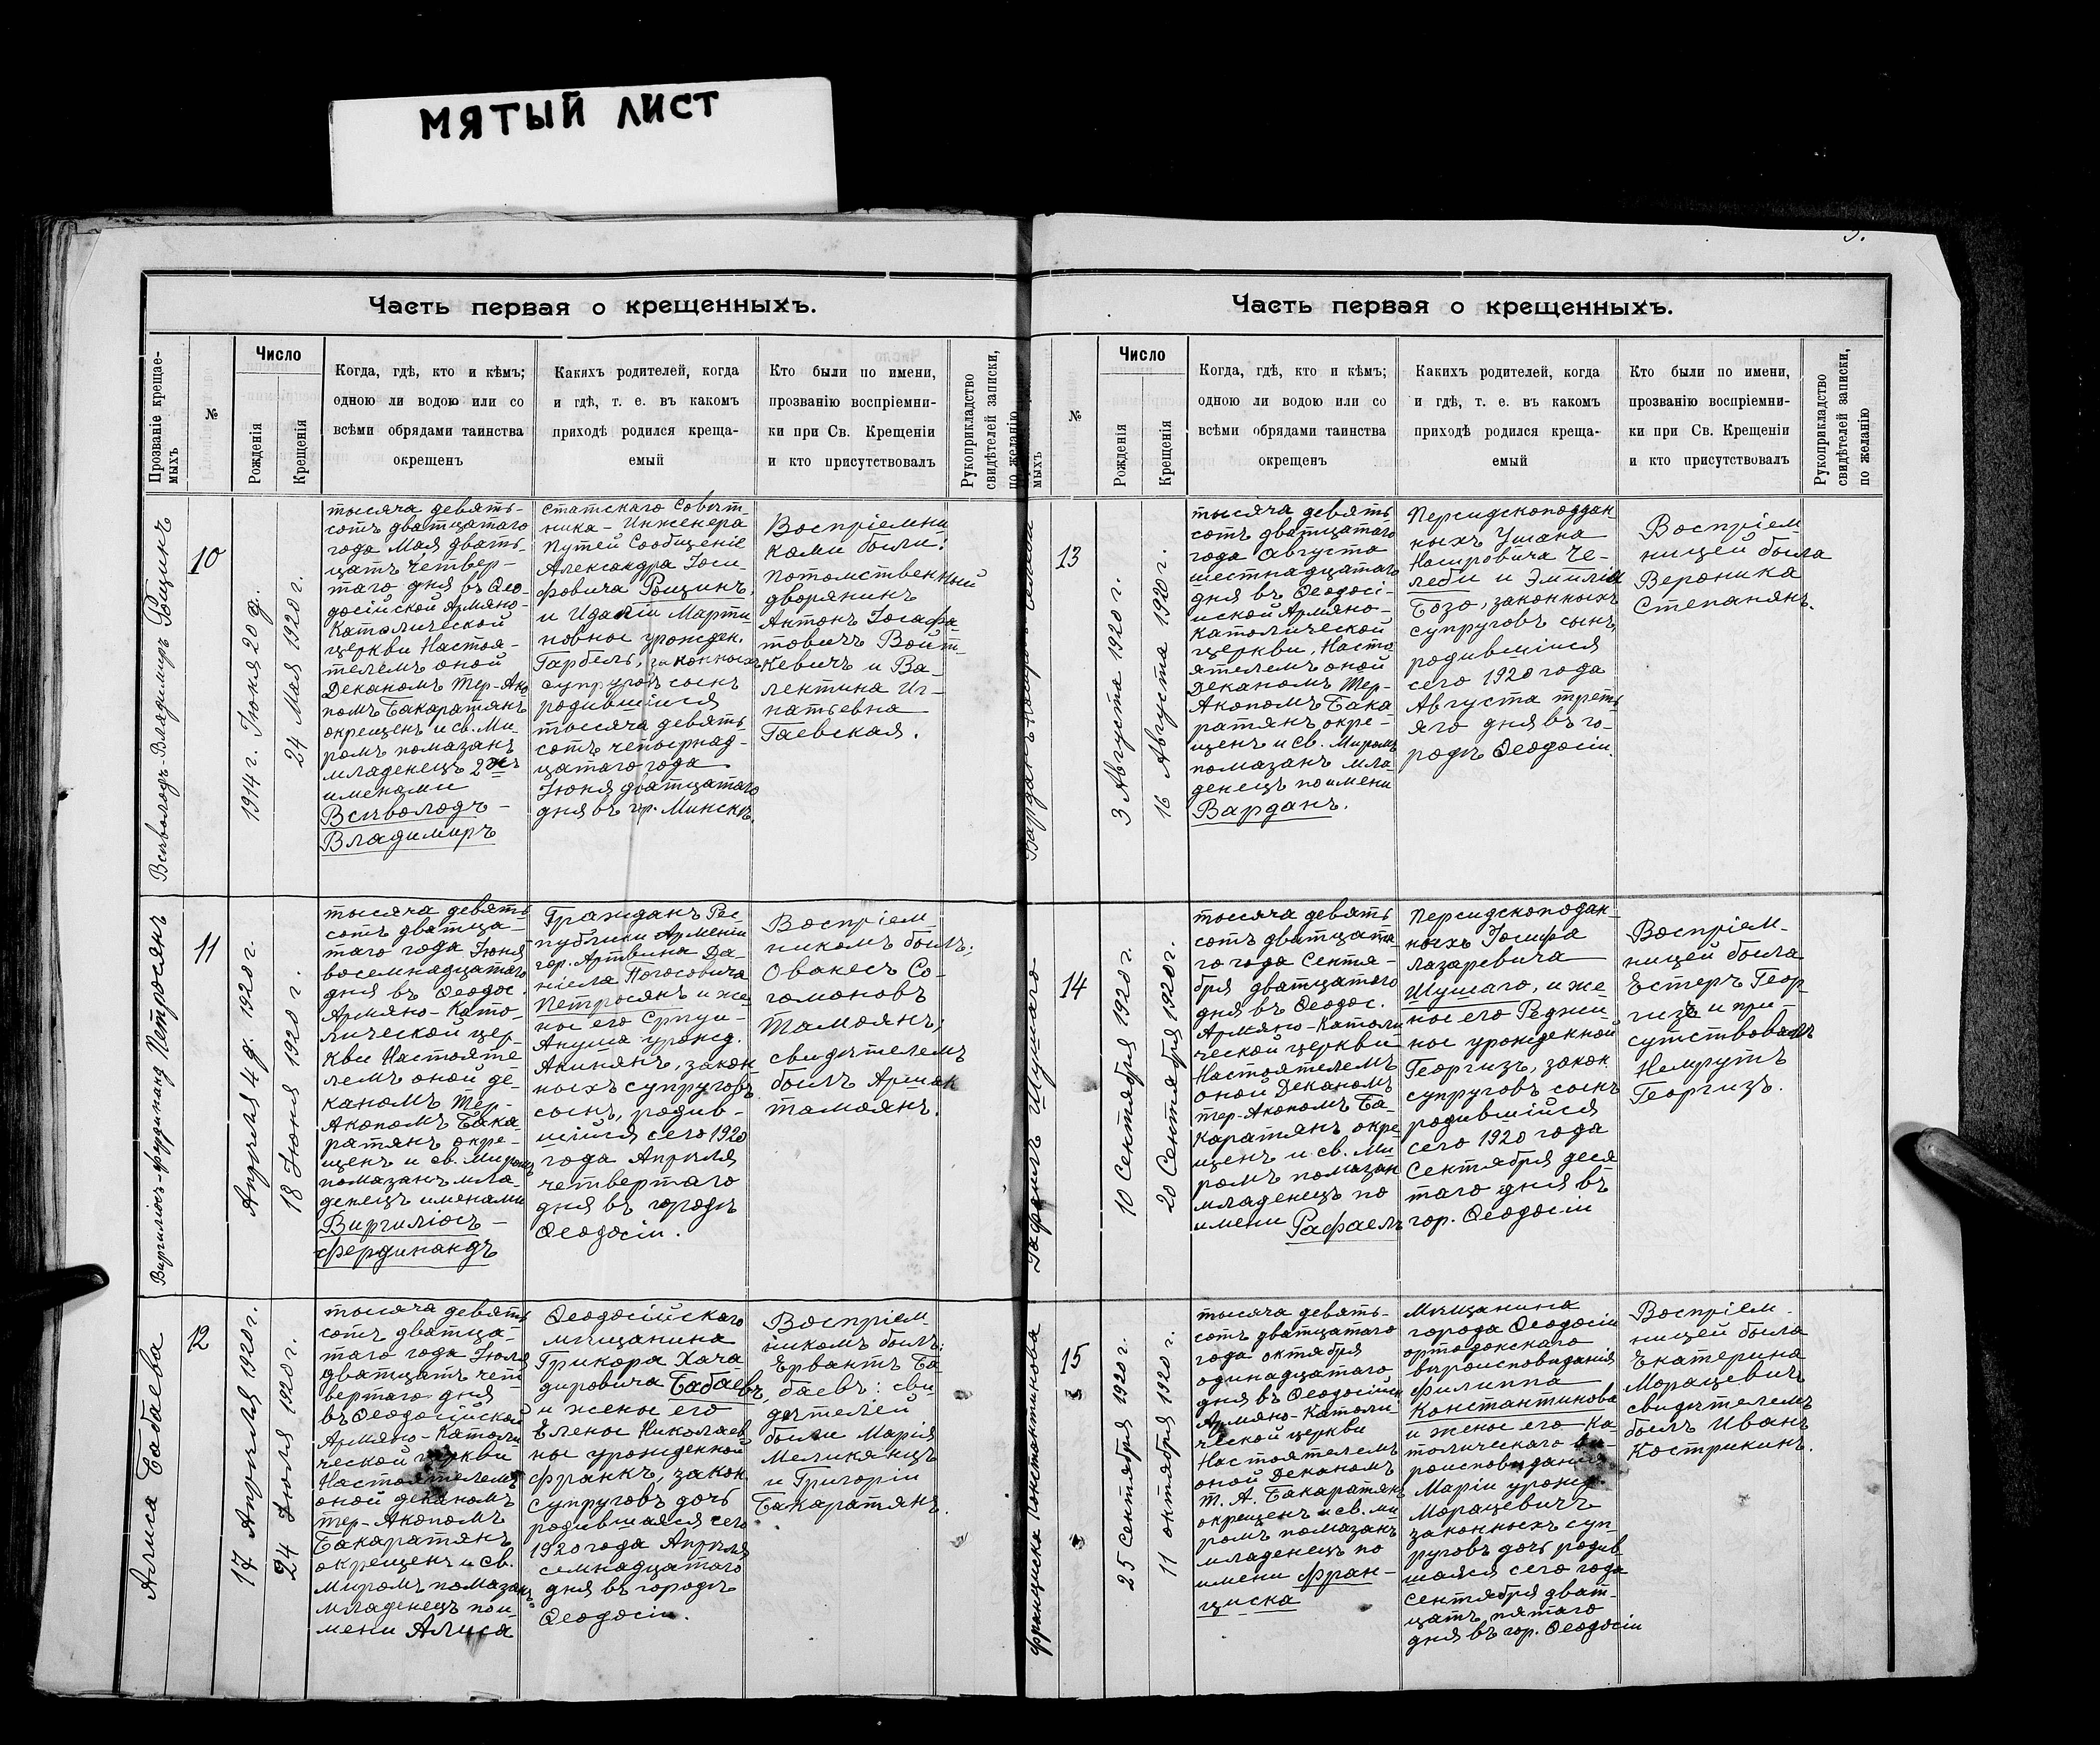 МЯТЫЙ ЛИСТ
Часть первая о крещенныхъ.
Прозваніе крещае-
мыхъ
№
Число
Рожденія
Крещенія
Когда, гдѣ, кто и кѣмъ;
одною ли водою или со
всѣми обрядами таинства
окрещенъ
Какихъ родителей, когда
и гдѣ, т. е. въ какомъ
приходѣ родился креща-
емый
Кто были по имени,
прозванію воспріемни-
ки при Св. Крещеніи
и кто присутствовалъ
Рукоприкладство
свидѣтелей записки,
по желанію
Всѣволодъ-Владимиръ Рощинъ
10
1914 г. Іюня 20 д.
24 Мая 1920 г.
тысяча девять-
сотъ дватцатаго
года Мая двать-
цать четвер-
таго дня въ Ѳео-
досійской Армяно-
Католической
церкви Настоя-
телемъ оной
Деканомъ Тер-Ако
помъ Бакаратянъ
окрещенъ и св. Ми-
ромъ помазанъ
младенецъ 2хъ
именами
Всѣволодъ-
Владимиръ
статскаго Совѣт-
ника-Инженера
Путей Сообщеніе
Александра Іоси-
фовича Рощинъ,
и Идаліи Марти
новное урожден.
Гарбель, законныхъ
супруговъ сынъ
родившійся
тысяча девять
сотъ четырнад-
цатаго года
Іюня дватцатаго
дня въ гор. Минскѣ.
Воспріемни
ками были:
потомственный
дворянинъ
Антонъ Іосафа-
товичъ Войт-
кевичъ и Ва-
лентина Иг-
натьевна
Гаевская.
Виргиліосъ-Фердинандъ Петросянъ
11
Апрѣля 4 д. 1920 г.
18 Іюня 1920 г.
тысяча девять
сотъ дватца-
таго года Іюня
восемнадцатаго
дня въ Ѳеодос.
Армяно-Като-
лической цер-
кви Настояте
лемъ оной де-
каномъ Тер-
Акопомъ Бака-
ратянъ окре-
щенъ и св. Миромъ
помазанъ мла-
денецъ именами
Виргиліосъ-
Фердинандъ
Гражданъ Рес
публики Арменіи
гор. Артвина Да-
ніела Погосовича
Петросянъ и же
ное его Српуи-
Ануша урожд.
Акинянъ, закон
ныхъ супруговъ
сынъ, родив-
шійся сего 1920
года Апрѣля
четвертаго
дня въ городѣ
Ѳеодосіи.
Воспріем
никомъ былъ:
Ованесъ Со-
гомоновъ
Тамоянъ;
свидѣтелемъ
былъ Аршак
тамоянъ.
Алиса Бабаева
12
17 Апрѣля 1920 г.
24 Іюля 1920 г.
тысяча девять
сотъ дватца-
таго года Іюля
дватцать чет
вертаго дня
въ Ѳеодосійской
Армяно-Католи
ческой церкви
Настоятелемъ
оной деканомъ
тер-Акопомъ
Бакаратянъ
окрещенъ и св.
миромъ помазанъ
младенецъ по и-
мени Алиса
Ѳеодосійскаго
мѣщанина
Грикора Хача
дуровича Бабаевъ,
и жены его
Елены Николаев
ное урожденной
Франкъ, закон
супруговъ дочь
родившаяся сего
1920 года Апрѣля
семнадцатого
дня въ городѣ
Ѳеодосіи.
Воспріем
никомъ былъ:
Ервантъ Ба
баевъ: сви
дѣтелей
были Марія
Меликянцъ
и Григоріи
Бакаратянъ.
3.
Часть первая о крещенныхъ.
мыхъ
№
Число
Рожденія
Крещенія
Когда, гдѣ, кто и кѣмъ;
одною ли водою или со
всѣми обрядами таинства
окрещенъ
Какихъ родителей, когда
и гдѣ, т. е. въ какомъ
приходѣ родился креща-
емый
Кто были по имени,
прозванію воспріемни-
ки при Св. Крещеніи
и кто присутствовалъ
Рукоприкладство
свидѣтелей записки,
по желанію
13
3 Августа 1920 г.
16 Августа 1920 г.
тысяча девять
сотъ дватцатаго
года Августа
шестнадцатаго
дня въ Ѳеодосі-
иской Армяно-
католической
церкви, Насто
ятелемъ оной
Деканомъ Тер-
Акопомъ Бака
ратянъ окре-
щенъ и св. Миромъ
помазанъ мла
денецъ по имени
Варданъ.
Персидскоподдан-
ныхъ Ушана
Номровича Че-
леби и Эмиліи
Бозо, законныхъ
супруговъ сынъ,
родившійся
сего 1920 года
Августа треть
яго дня въ го-
родѣ Ѳеодосіи.
Воспріем
ницей была
Вероника
Степанянъ.
Рафаилъ Шушаго
14
10 Сентября 1920 г.
20 Сентября 1920 г.
тысяча девять
сотъ двatцата
го года Сентя-
бря двaтцатого
дня въ Ѳеодос.
Армяно-Католи
ческой церкви
Настоятелемъ
оной Деканомъ
тер-Акопомъ Ба-
каратянъ окре
щенъ и св. Ми-
ромъ помазан
младенецъ по
имени Рафаелъ
Персидскоподан-
ныхъ Іосифа
Лазаревича
Шушаго, и же
ное его Реджи-
ное урожденной
Георгизъ, закон
супруговъ сынъ
родившійся
сего 1920 года
Сентября деся
таго дня въ
гор. Ѳеодосіи
Воспріем-
ницей была
Естеръ Геор-
гизъ и при-
сутствовалъ
Немрутъ
Георгизъ.
Франциска Константинова
15
25 Сентября 1920 г.
11 октября 1920 г.
тысяча девять-
сотъ дватцатаго
года октября
одинадцатаго
дня въ Ѳеодосійск
Армяно-Католи
ческой церкви
Настоятелемъ
оной Деканомъ
Т. А. Бакаратянъ
окрещенъ и св. ми
ромъ помазанъ
младенецъ по
имени Фран-
циска
Мѣщанина
города Ѳеодосіи
ортодокскаго
вѣроисповѣданія
Филиппа
Константинова
и жены его ка-
толическаго вѣ-
роисповѣданія
Маріи урожд.
Морацевичъ
законныхъ суп-
руговъ дочь родив
шаяся сего года
сентября дват-
цать пятаго
дня въ гор. Ѳеодосіи
Воспріем-
ницей была
Екатерина
Морацевичъ
свидѣтелемъ
былъ Иванъ
Кострикинъ.